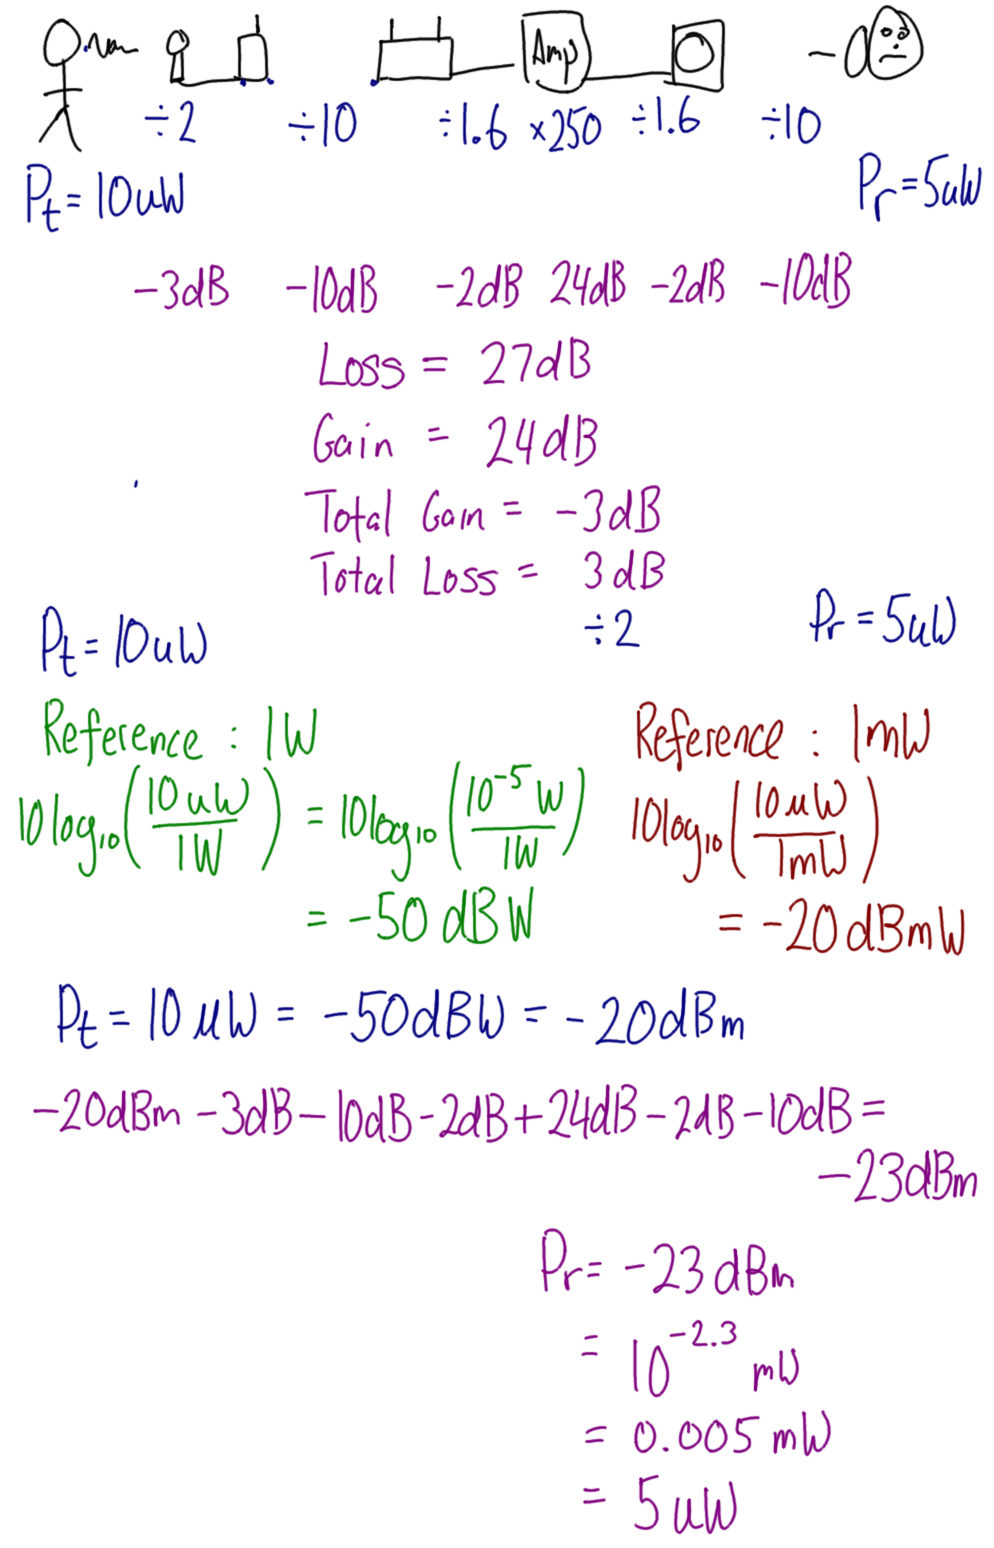 Amp
÷2 ÷10 ÷1.6 ×250 ÷1.6 ÷10
Pt = 10uW Pr = 5uW
-3dB -10dB -2dB 24dB -2dB -10dB
Loss = 27dB
Gain = 24dB
Total Gain = -3dB
Total Loss = 3dB
Pt = 10uW ÷2 Pr = 5uW
Reference : 1W Reference : 1mW
10log10(10uW/1W) = 10log10(10^-5 W/1W) 10log10(10μW/1mW)
= -50 dBW = -20dBmW
Pt = 10μW = -50dBW = -20dBm
-20dBm -3dB -10dB -2dB +24dB -2dB -10dB =
-23dBm
Pr = -23dBm
= 10^-2.3 mW
= 0.005 mW
= 5uW